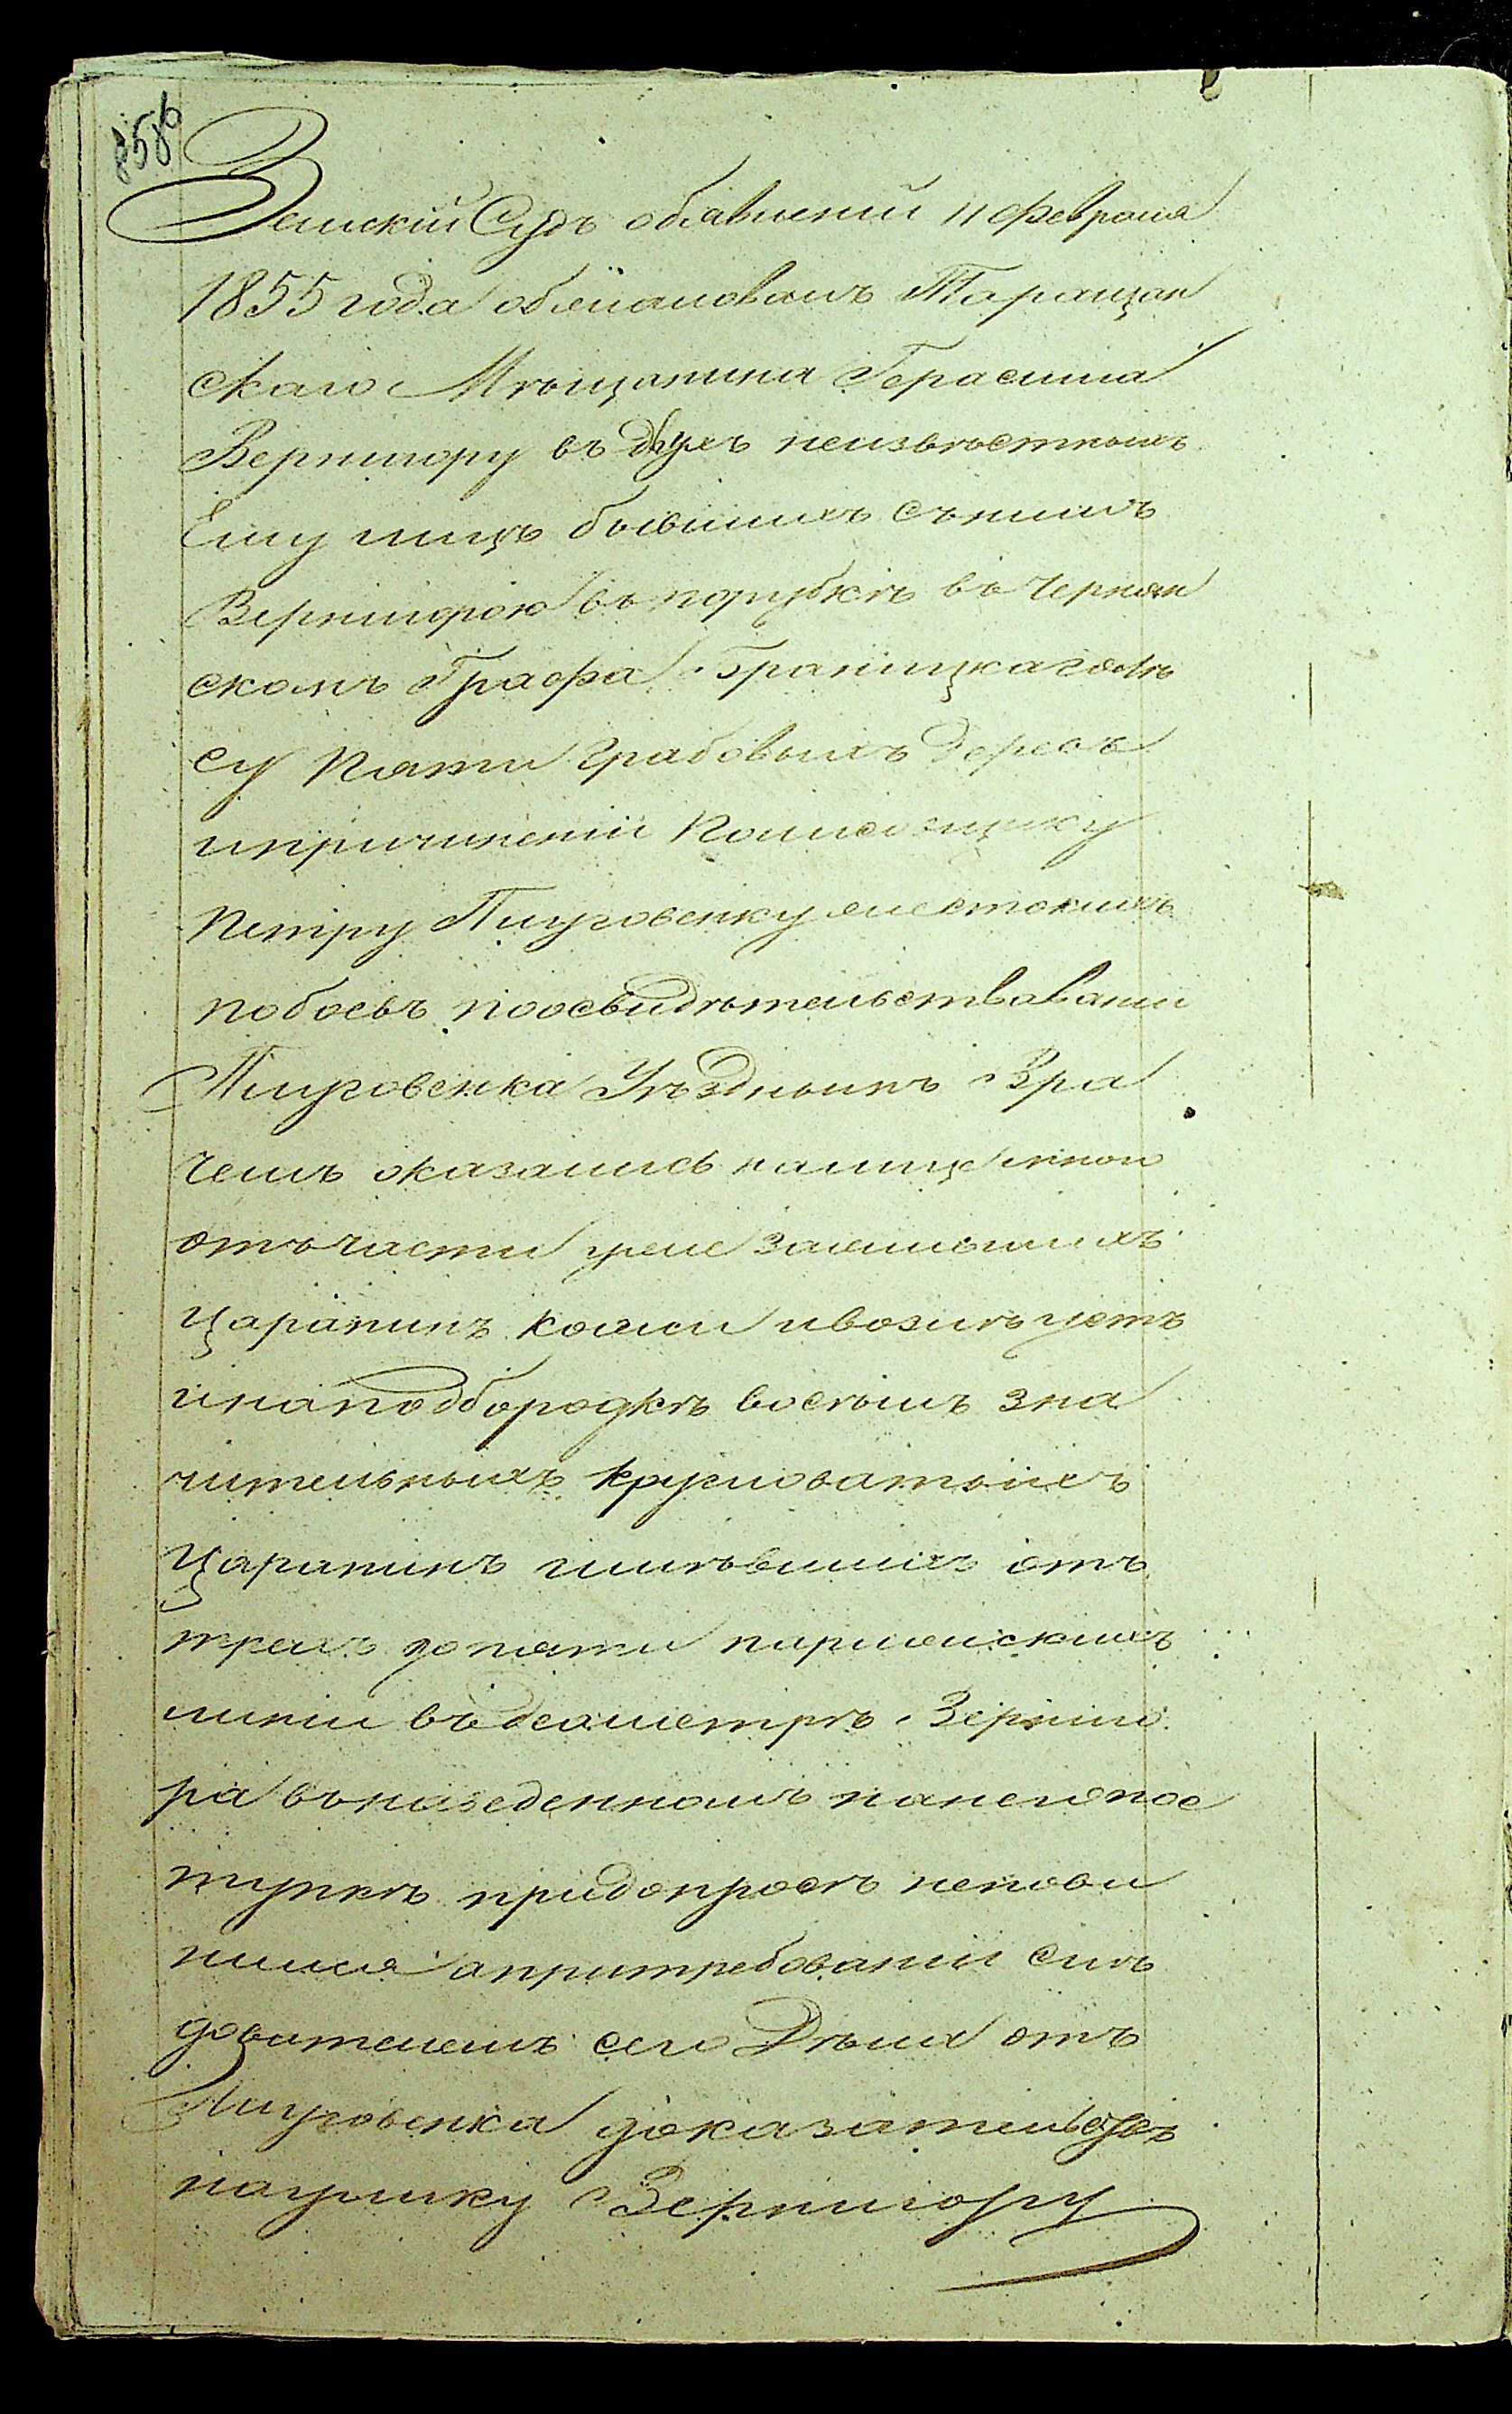 858
Земскій Судъ объявленій 11 февраля
1855 года обжаловалъ Таращан
скаго Мѣщанина Герасима
Вернигору въ двухъ неизвѣстныхъ
Ему лицъ бывшихъ съ нимъ
Вернигорою въ порубкѣ въ Чернян
скомъ Графа Браницкаго лѣ
су пяти Грабовыхъ деревъ
и причиненіи
Петру Пируговенку жестокихъ
побоевъ по освидѣтельствованіи
Уѣзднымъ Вра
чемъ оказались на лице много
отъ части уже зажившихъ
царапинъ кожи и возлѣ устъ
и на подбородкѣ восемь зна
чительныхъ кругловатыхъ
царапинъ имѣвшихъ отъ
трехъ до пяти парижскихъ
линіи въ деаметрѣ. Верниго
ра въ наведенномъ на него пос
тупкѣ при допросѣ непови
нился а при требованіи слѣ
дователемъ сего Дѣла отъ
доказательствъ
на улику Вернигору